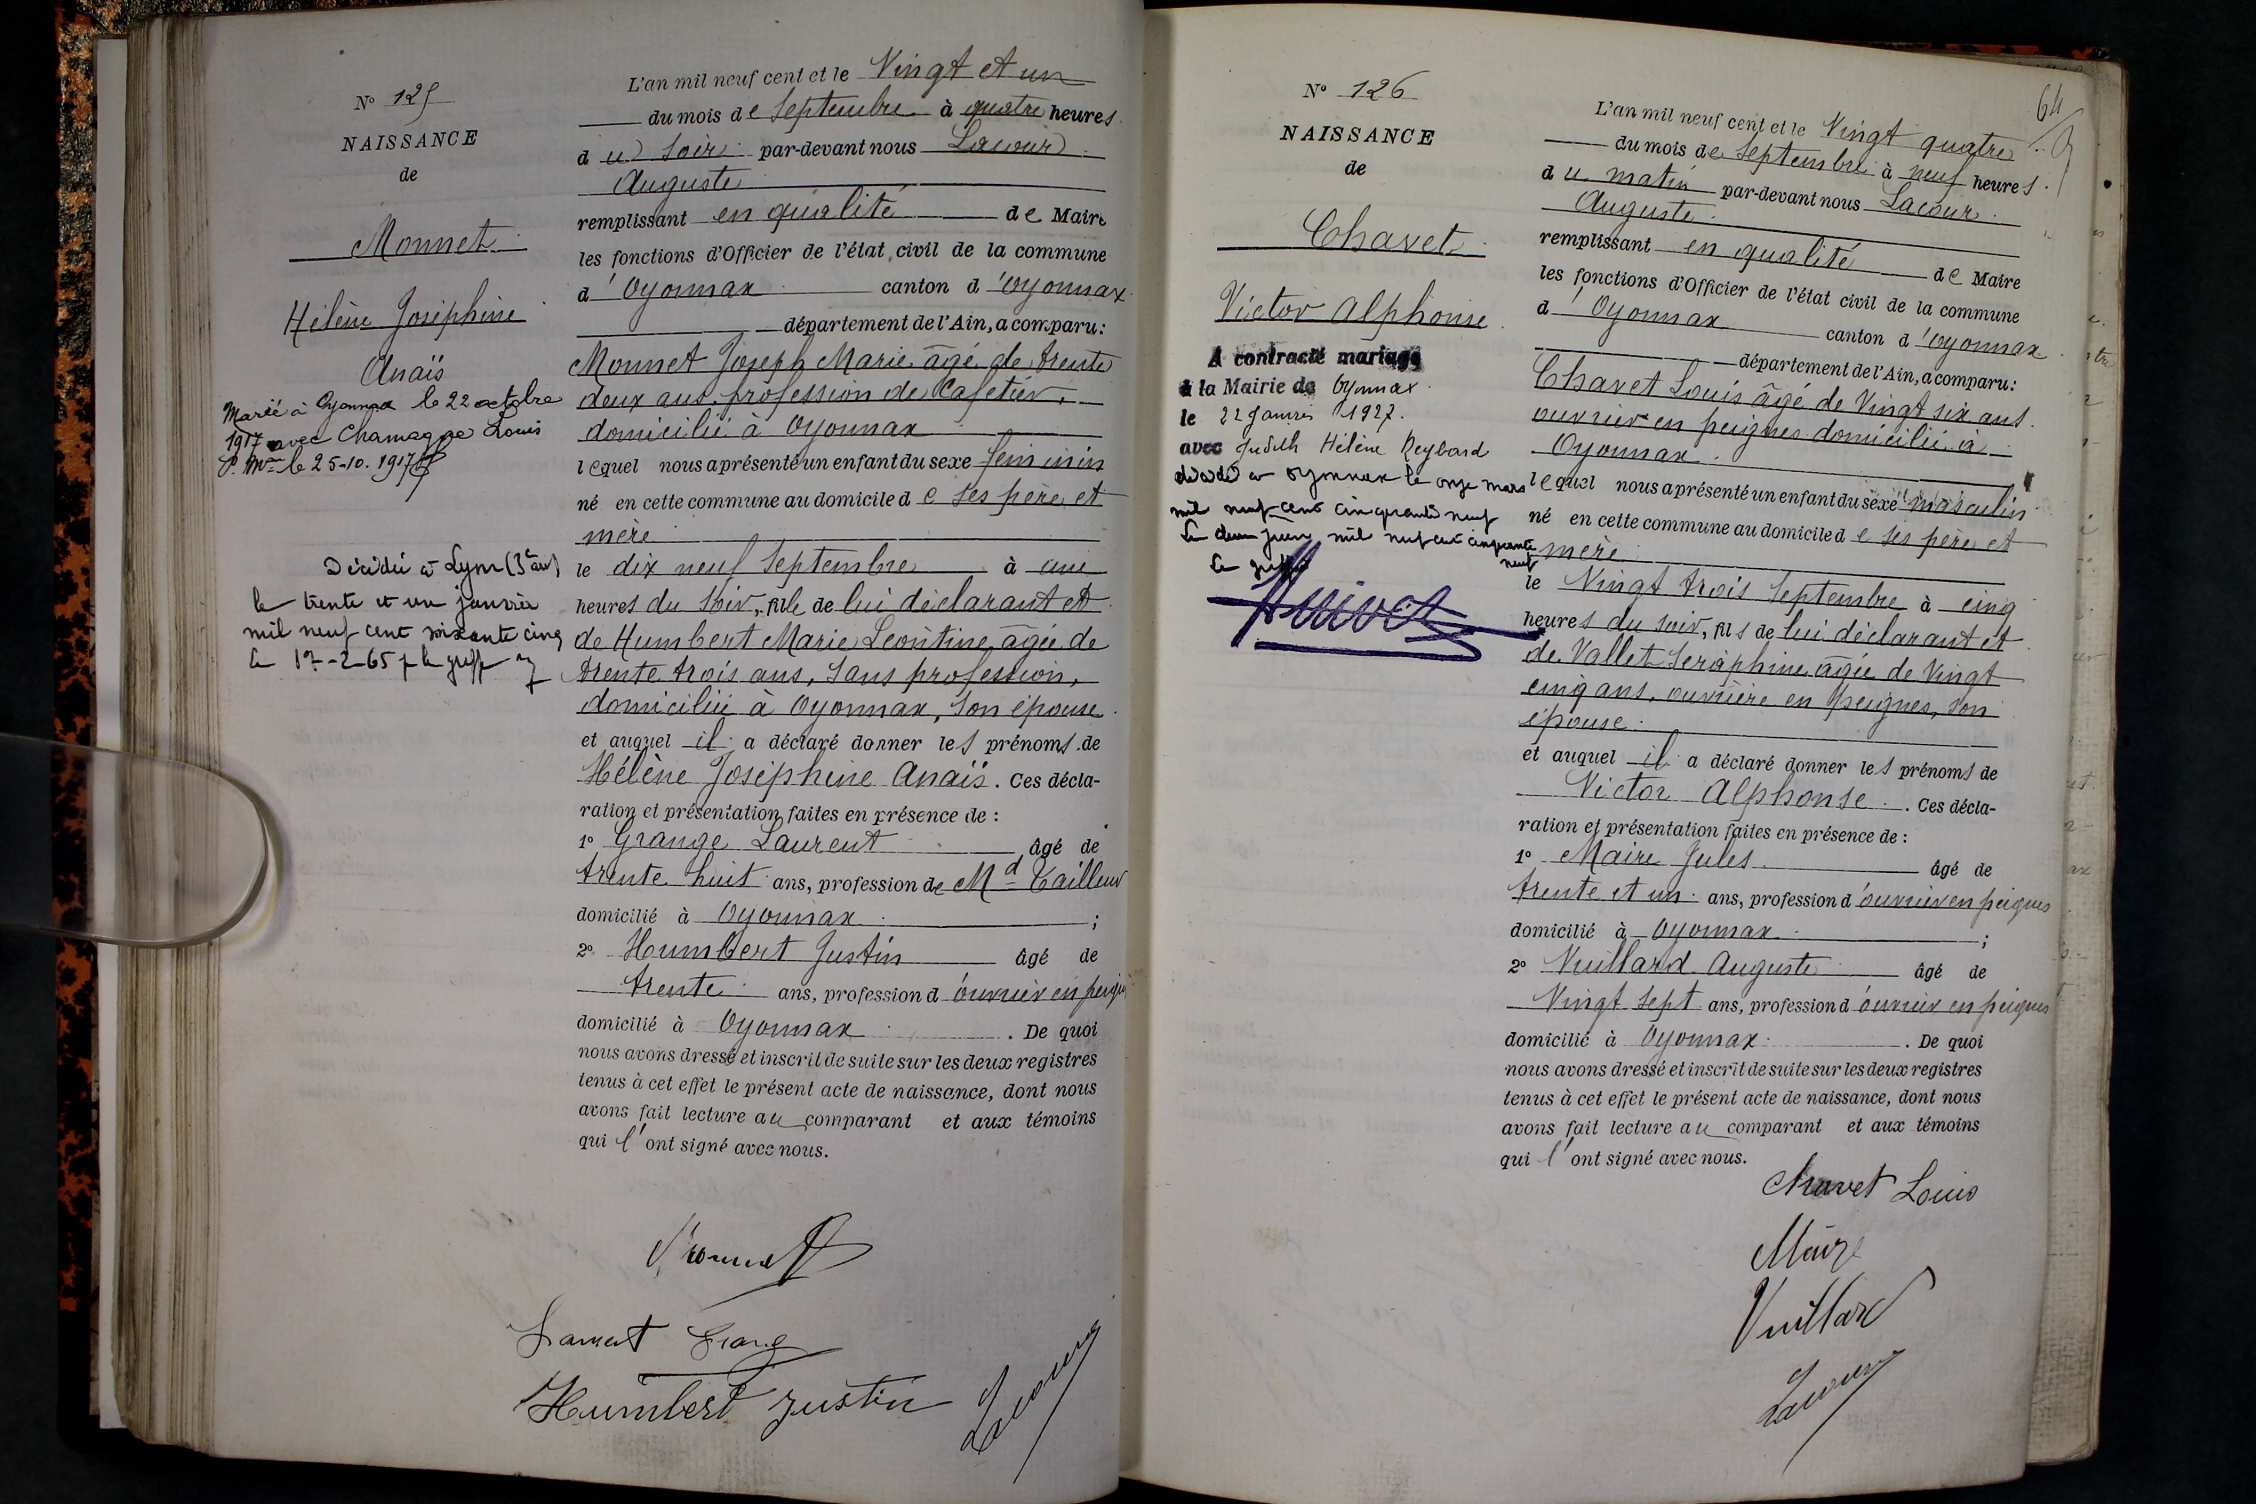 N° 125
NAISSANCE
de
Monnet
Hélène Joséphine
Anaïs
Marié à Oyonnax le 22 octobre
1917 avec Chamagne Louis
P. Mon le 25-10. 1917
Décédée à Lyon (3e arr)
le trente et un janvier
mil neuf cent soixante cinq
Le 17-2-65 p le greff
L'an mil neuf cent et le Vingt et un
du mois de Septembre à quatre heures
du soir par-devant nous Lacour
Auguste
remplissant en qualité de Maire
les fonctions d'Officier de l'état civil de la commune
d'Oyonnax canton d'Oyonnax
département de l'Ain, a comparu:
Monnet Joseph Marie âgé de trente
deux ans, profession de Cafetier,
domicilié à Oyonnax
lequel nous a présenté un enfant du sexe féminin
né en cette commune au domicile de ses père et
mère
le dix neuf Septembre à une
heures du soir, fille de lui déclarant et
de Humbert Marie Léontine, âgée de
trente trois ans, sans profession,
domiciliée à Oyonnax, son épouse
et auquel il a déclaré donner les prénoms de
Hélène Joséphine Anaïs. Ces décla-
ration et présentation faites en présence de :
1° Grange Laurent âgé de
trente huit ans, profession de Md Tailleur
domicilié à Oyonnax ;
2° Humbert Justin âgé de
trente ans, profession d'ouvrier en peign
domicilié à Oyonnax. De quoi
nous avons dressé et inscrit de suite sur les deux registres
tenus à cet effet le présent acte de naissance, dont nous
avons fait lecture au comparant et aux témoins
qui l'ont signé avec nous.
Monnet
Laurent Grange
Humbert Justin
Lacour
64
N° 126
NAISSANCE
de
Chavet
Victor Alphonse
A contracté mariage
à la Mairie de Oyonnax
le 22 janvier 1927.
avec Judith Hélène Reybard
décédé à Oyonnax le onze mars
mil neuf cent cinquante neuf
Le deux juin mil neuf cent cinquante
neuf
Le greff
L'an mil neuf cent et le Vingt quatre
du mois de Septembre à neuf heures
du matin par-devant nous Lacour
Auguste
remplissant en qualité de Maire
les fonctions d'Officier de l'état civil de la commune
d'Oyonnax canton d'Oyonnax
département de l'Ain, a comparu:
Chavet Louis âgé de Vingt six ans
ouvrier en peignes domicilié à
Oyonnax
lequel nous a présenté un enfant du sexe masculin
né en cette commune au domicile de ses père et
mère
le Vingt trois Septembre à cinq
heures du soir, fils de lui déclarant et
de Vallet Séraphine âgée de Vingt
cinq ans, ouvrière en peignes, son
épouse
et auquel il a déclaré donner les prénoms de
Victor Alphonse. Ces décla-
ration et présentation faites en présence de :
1° Maire Jules âgé de
trente et un ans, profession d'ouvrier en peignes
domicilié à Oyonnax ;
2° Vuillard Auguste âgé de
Vingt sept ans, profession d'ouvrier en peignes
domicilié à Oyonnax. De quoi
nous avons dressé et inscrit de suite sur les deux registres
tenus à cet effet le présent acte de naissance, dont nous
avons fait lecture au comparant et aux témoins
qui l'ont signé avec nous.
Chavet Louis
Maire
Vuillard
Lacour